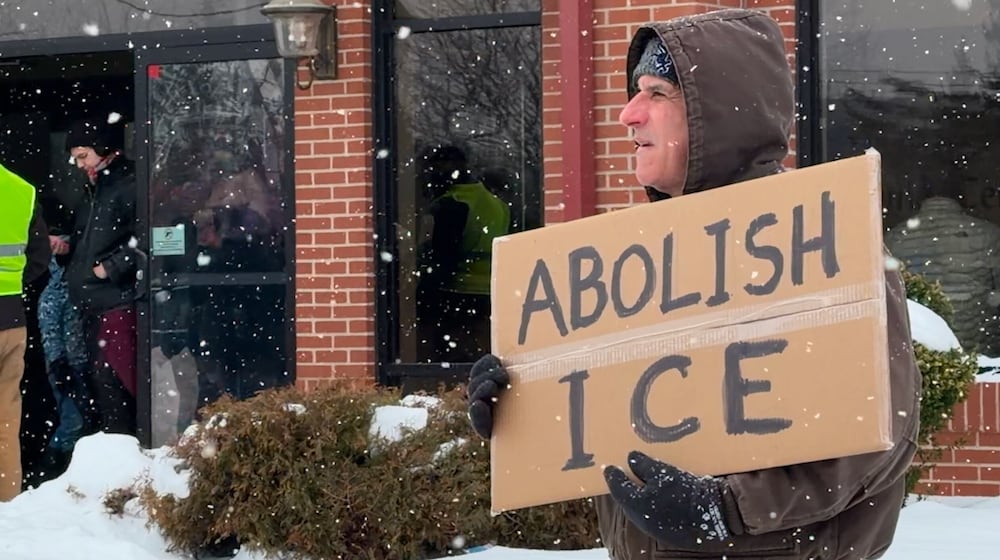 ABOLISH
ICE